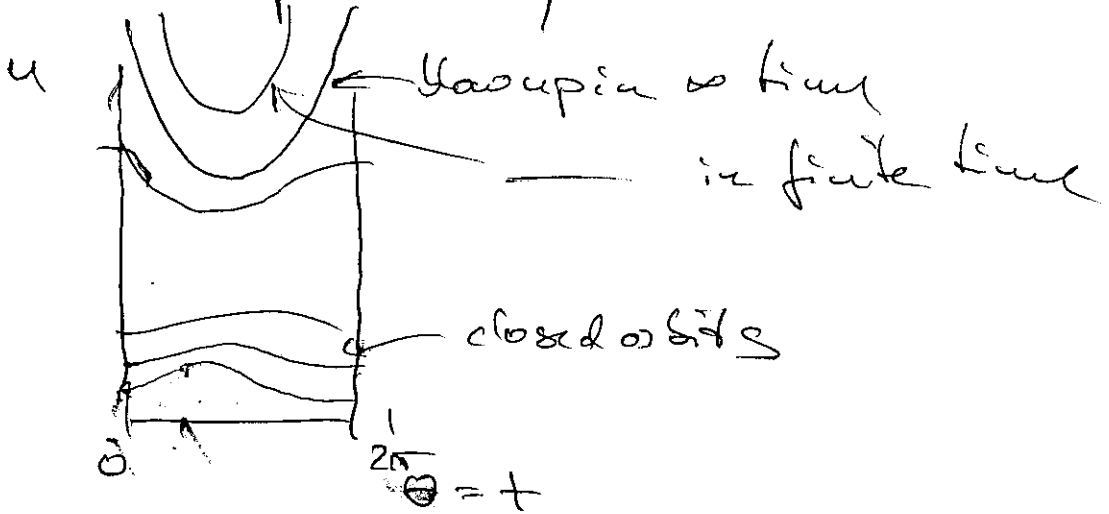 u
∞ time
in finite time
closed orbits
0
2π
θ = t